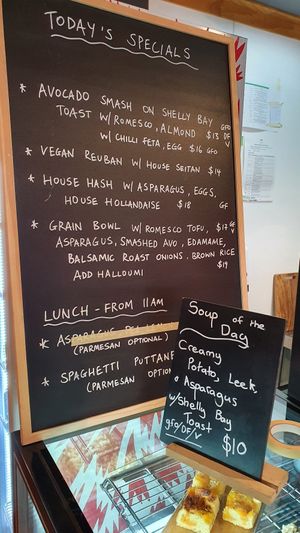 TODAY'S SPECIALS
* AVOCADO SMASH ON SHELLY BAY
TOAST W/ROMESCO, ALMOND $13 GFO DF V
W/CHILLI FETA, EGG $16 GFO
* VEGAN REUBAN W/ HOUSE SEITAN $14
* HOUSE HASH W/ASPARAGUS, EGGS,
HOUSE HOLLANDAISE $18 GF
* GRAIN BOWL W/ ROMESCO TOFU, $17
ASPARAGUS, SMASHED AVO, EDAMAME,
BALSAMIC ROAST ONIONS, BROWN RICE
ADD HALLOUMI $19
LUNCH - FROM 11AM
*
(PARMESAN OPTIONAL)
* SPAGHETTI PUTTANE
(PARMESAN OPTION
Soup of the
Day
Creamy
Potato, Leek,
Asparagus
w/Shelly Bay
Toast
GFO/DF/V $10